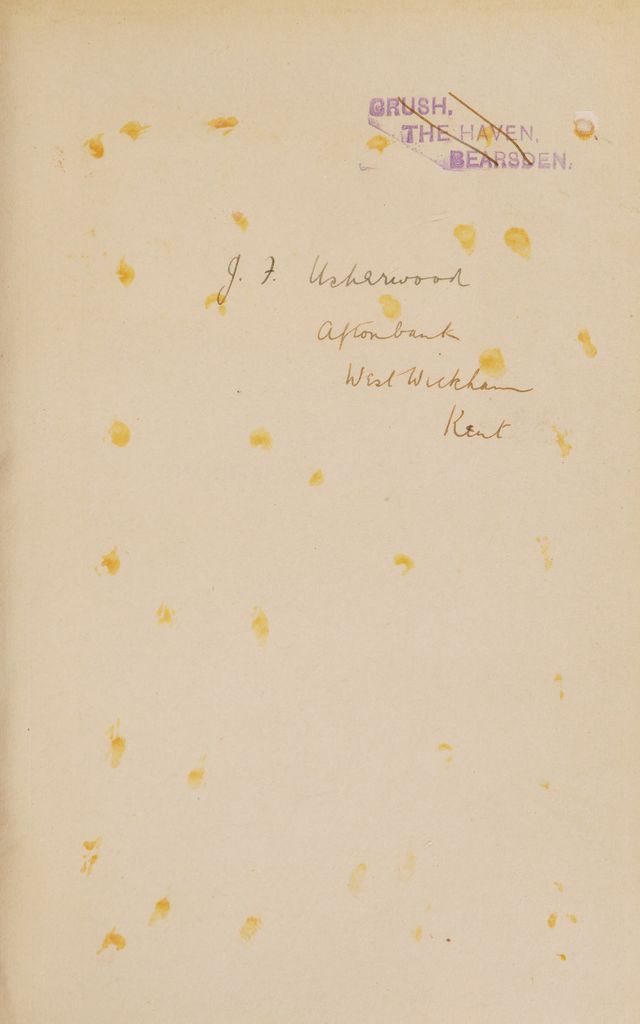 CRUSH,
THE HAVEN,
BEARSDEN.
J. F. Usherwood
Aftonbank
West Wickham
Kent